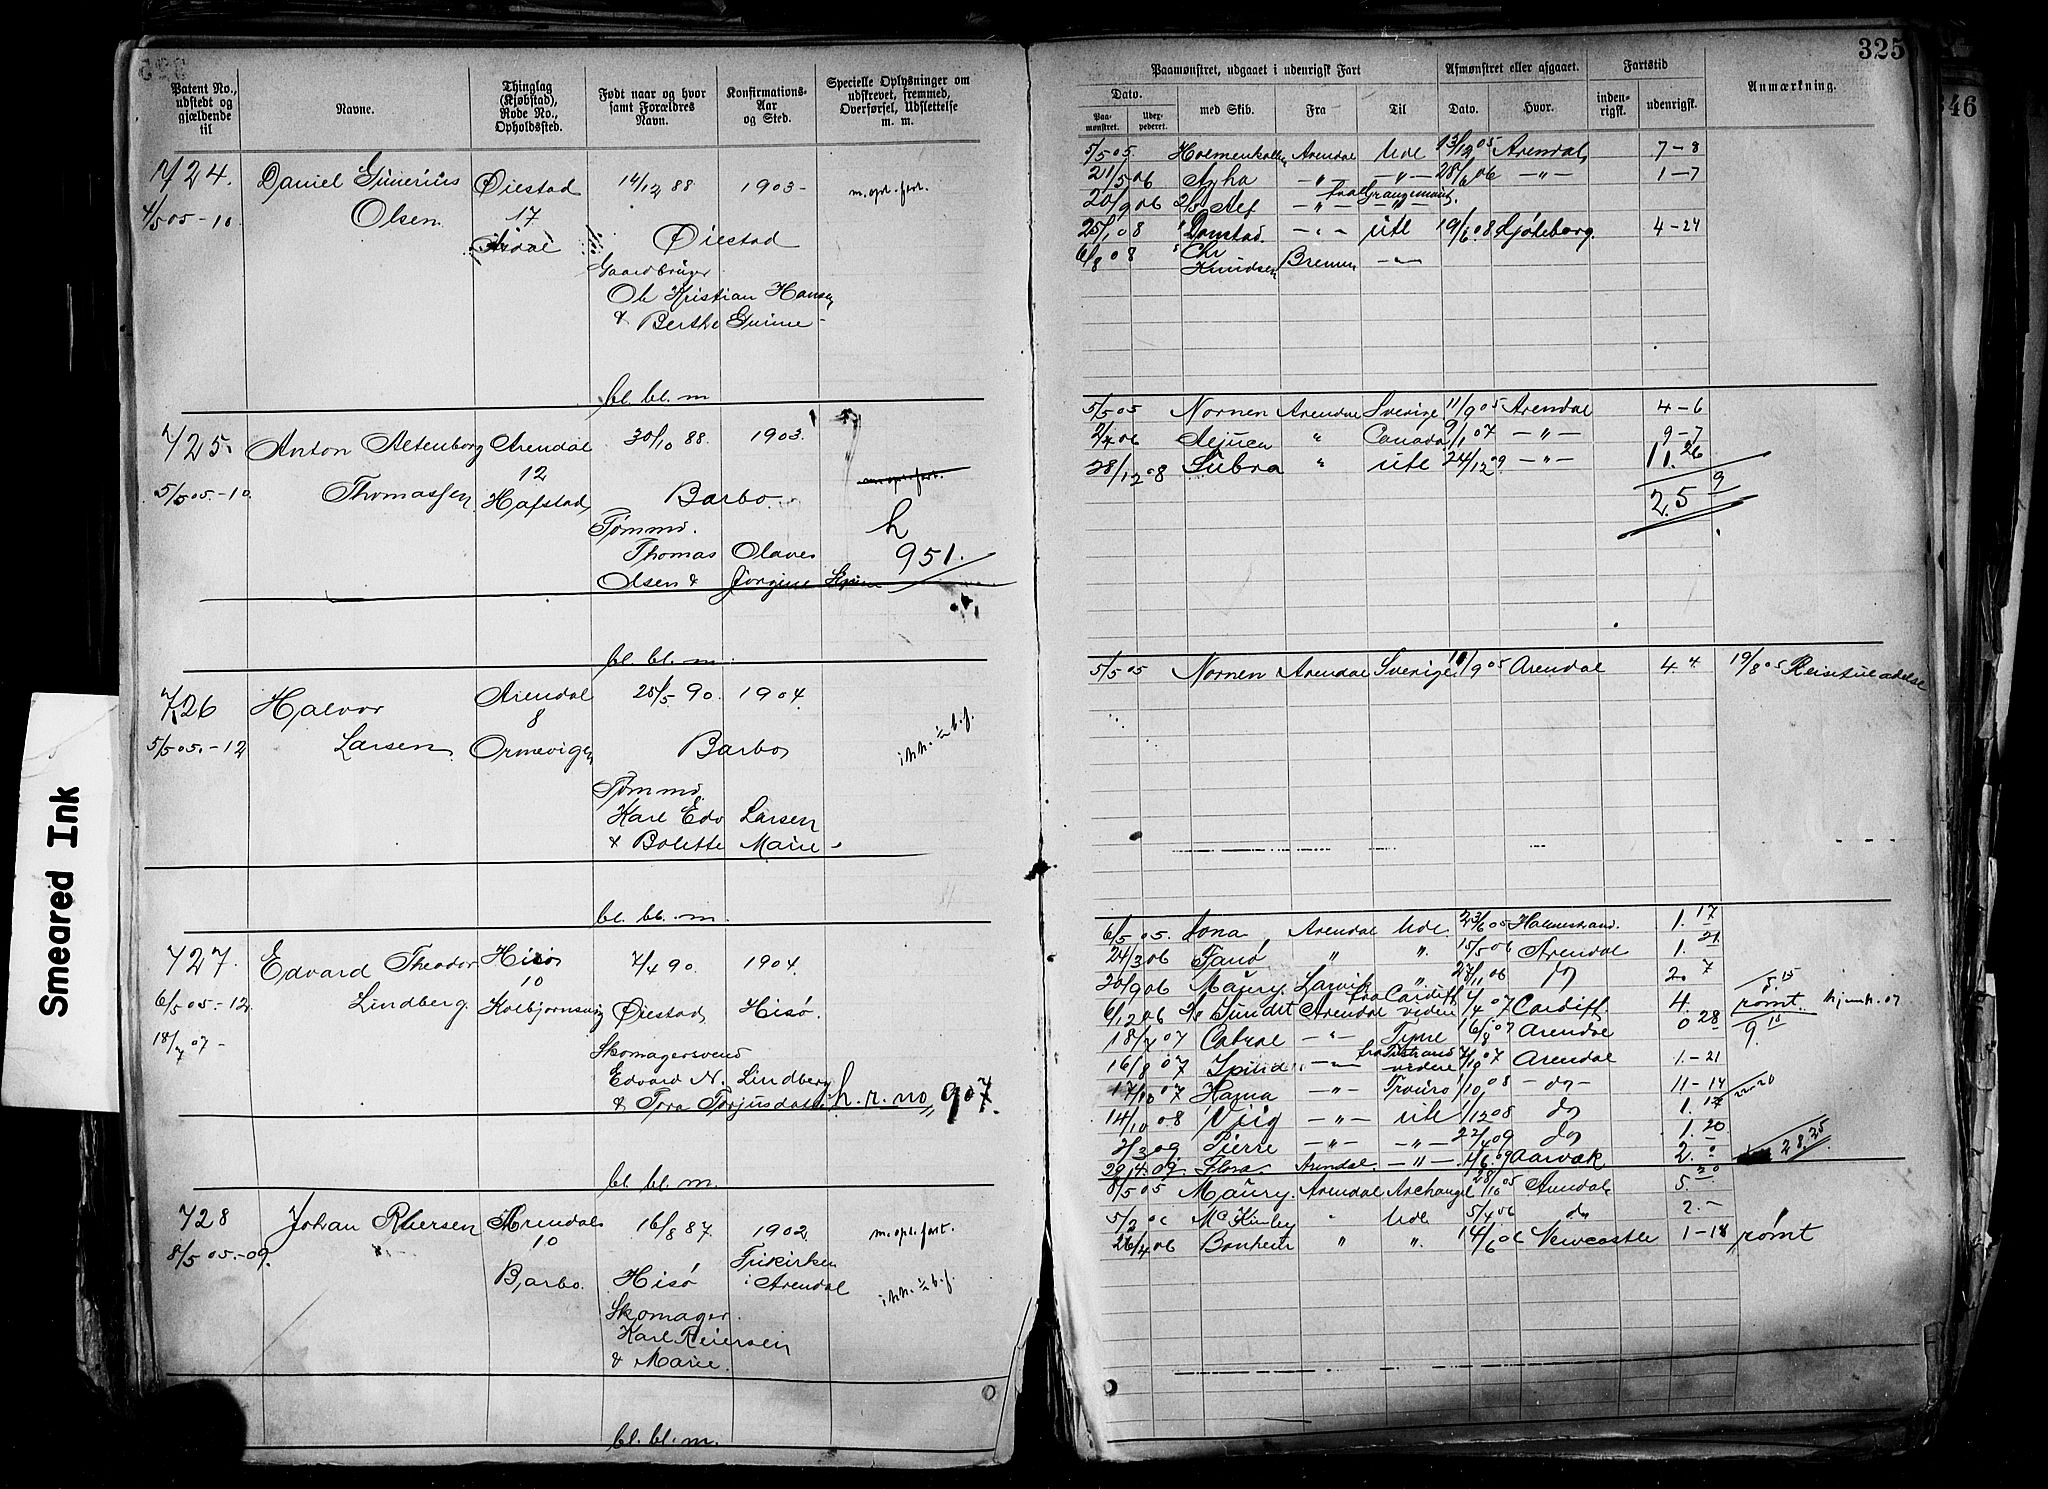 325
346
Patent No., udstedt og gjældende til
Navne.
Thinglag (Kjøbstad), Rode No., Opholdssted.
Født naar og hvor samt Forældres Navn.
Konfirmations-Aar og Sted.
Specielle Oplysninger om udskrevet, fremmed, Overførsel, Udslettelse m. m.
Paamønstret, udgaaet i udenrigsk Fart
Afmønstret eller afgaaet.
Fartstid
Anmærkning.
Dato.
Paamønstret.
Udexpederet.
med Skib.
Fra
Til
Dato.
Hvor.
indenrigsk.
udenrigsk.
724.
4/5 05-10
Daniel Gunerius
Olsen
Øiestad
17
14/12 88
1903
m. opl. fart.
Øiestad
Gaardbruger
Ole Kristian Hansen
& Berthe Gurine
bl. bl. m
5/5 05. Holmenkollen Arendal Ude 13/12 05 Arendal 7-8
21/5 06 Agha -"- -"- 28/6 06 -"- 1-7
20/9 06 Alf -"- fra Grangemout.
25/1 08 Danstad. -"- ute 19/6 08 Gjøteborg. 4-24
6/8 08 Chr Knudsen Bremen -"-
725.
5/5 05.-10
Anton Altenborg
Thomassen
Arendal
12
Hafstad
30/10 88.
1903.
m. opl. fart.
Barbo.
Tømmd.
Thomas Olaves
Olsen & Jørgine
h
951.
bl. bl. m.
5/5 05 Nornen Arendal Sverige 11/9 05 Arendal 4-6
2/4 06 " Canada 9/1 07 -"- 9-7
28/12 08 Subra " ute 24/12 09 -"- 11.26
25 9
726
5/5 05.-12
Halvor
Larsen
Arendal
8
Ormevigen
25/5 90.
1904
i h.h. ½ b.f.
Barbo
Tømmd.
Karl Edv Larsen
& Bolette Marie
bl. bl. m.
5/5 05 Nornen Arendal Sverige 11/9 05 Arendal 4.4 19/8 05 Reisetilladelse
727.
6/5 05-12
18/7 07-
Edvard Theodor
Lindberg.
Hisø
10
Kolbjørnsvig
7/4 90.
1904.
Øiestad
Hisø.
Skomagersvend
Edvard N. Lindberg
& Tora Torjusdatter
h. r. no, 907.
bl. bl. m.
6/5 05. Jona, Arendal Ude. 23/6 05 Holmestrand. 1.17
24/3 06 Fanø " " 15/5 06 Arendal 1.21
20/9 06 Maury. Larvik " 27/11 06 2.7
6/12 06 Sundet Arendal fra Cardiff videre 4/4 07 Cardiff. 4. rømt.
18/7 07 Cabral -"- Tyne 16/8 07 Arendal 0 28 9.15
16/8 07 -"- videre 7/10 07 Arendal 1.-21
17/10 07 Hama -"- 1/10 08 -do- 11-14 22.20
14/10 08 Viig -"- ute 1/12 08 do 1.17
2/3 09 Pierre -"- -"- 22/4 09 do 1.20
29/4.09. Flora Arendal -"- 1/6.09 Aarvak 2.0 28.25
728
8/5 05.-09.
Johan Reiersen
Arendal
10
Barbo.
16/8 87.
1902
Frikirken
i Arendal
m. opl. fart.
i h.h. ½ b.f.
Hisø
Skomager.
Karl Reiersen
& Marie.
bl. bl. m.
8/5 05 Maury. Arendal Archangel 28/10 05 Arendal 5.20
5/2 06 Mc Kinley " Ude 5/4 06 do 2.-
26/4 06 Bonheur " " 14/6 06 Newcastle 1-18 rømt
Smeared Ink